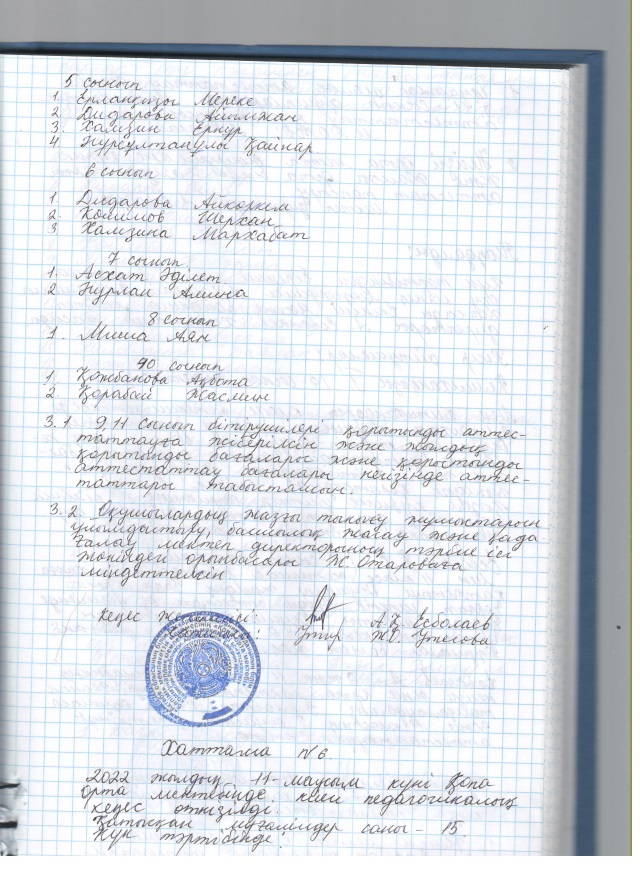 5 сынып
1. Ерланқызы Мереке
2. Дидарова Айымжан
3. Хамзин Ернур
4. Нурсултанұлы Қайнар
6 сынып
1. Дидарова Айкоркем
2. Шерхан
3 Хамзина Мархабат
7 сынып
1. Асхат Әділет
2 Нурлан Амина
8 сынып
1. Аян
10 сынып
1 Қожбанова Ақбота
2. Қорабай Жасмин
3.1. 9,11 сынып бітірушілері қорытынды аттес-
таттауға жіберілсін және жылдық
қорытынды бағалары және қорытынды
аттестаттау бағалары негізінде аттес-
таттары табысталсын.
3.2. Оқушылардың жазғы тынығу жумыстарын
ұйымдастыру, басшылық жасау және қада
ғалау мектеп директорының тәрбие ісі
жөніндегі орынбасары Ж. Отароваға
міндеттелсін
Кеңес А.Қ. Есболаев
Ж.О. Утегова
Хаттама №6
2022 жылдың 11-маусым күні Қопа
орта мектебінде кіші педагогикалық
кеңес өткізілді.
Қатысқан мұғалімдер саны - 15.
Күн тәртібінде